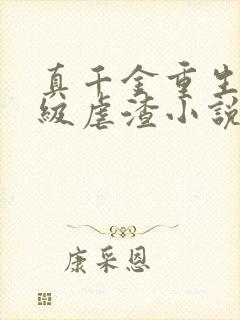 真千金重生
級虐渣小說
康采恩